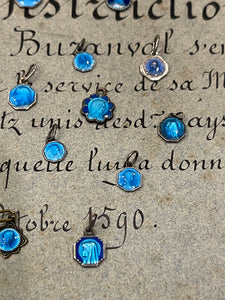 Instruction
Buzanval s'en
service de sa M
tz unis des pays
quelle luy a donn
tobre 1590.